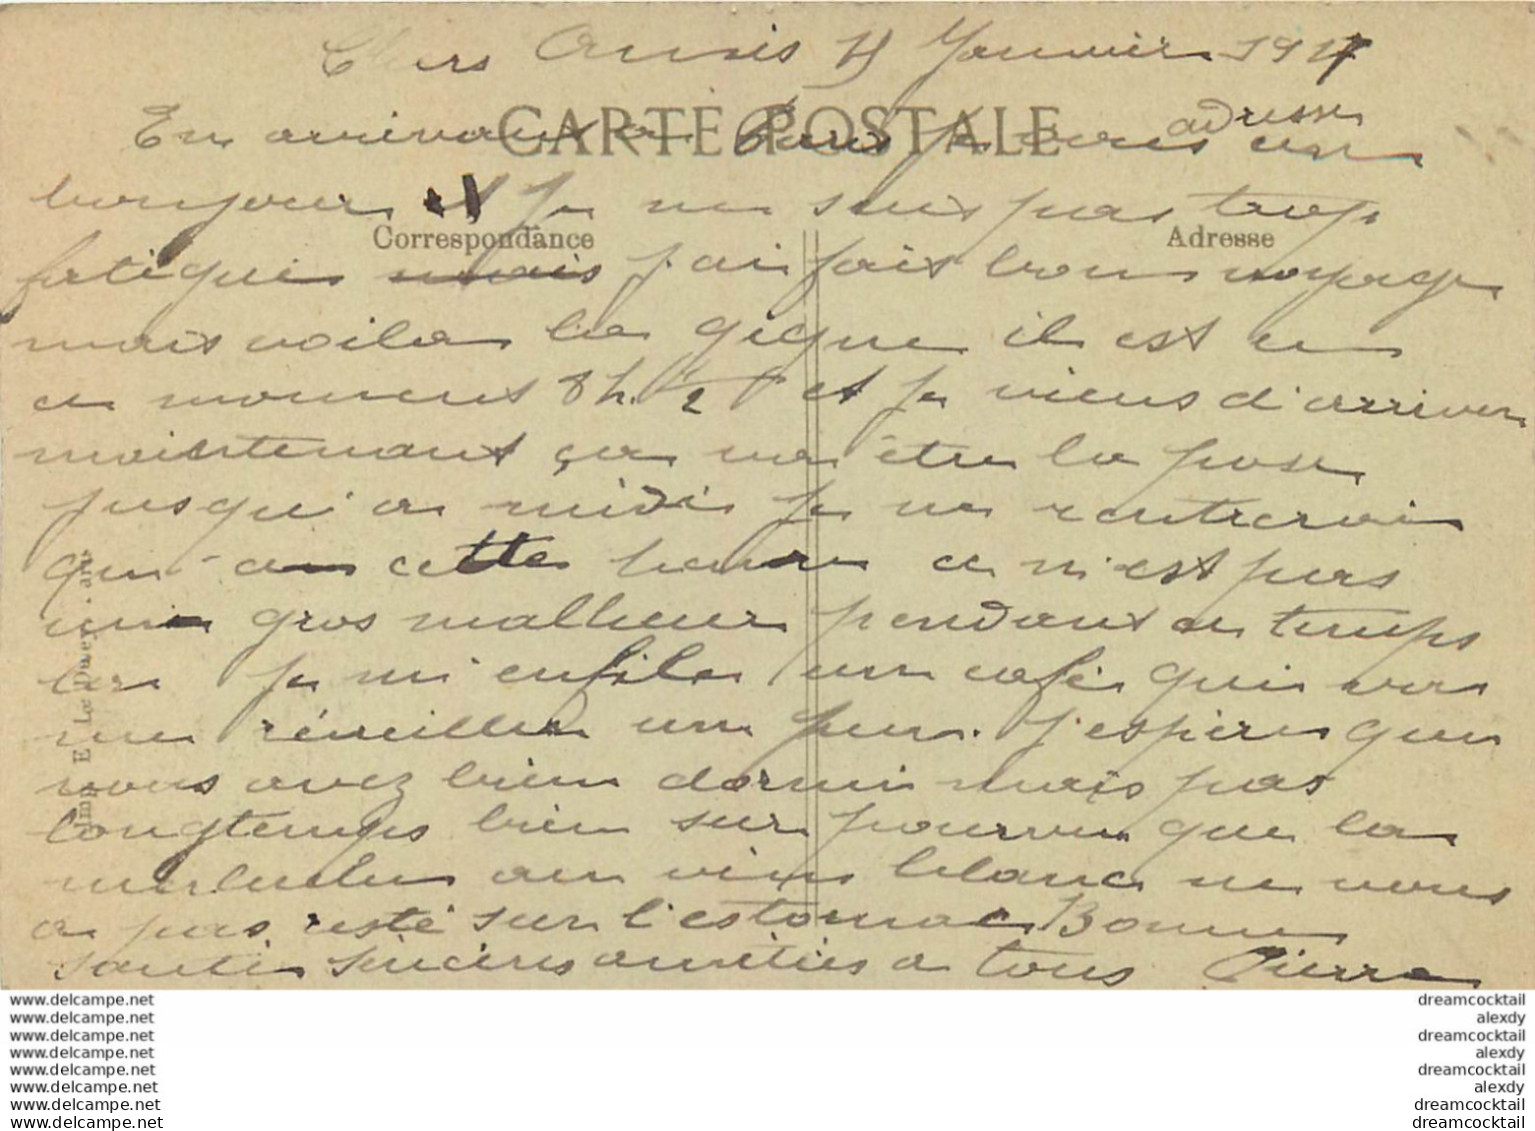 Chers Amis Janvier 19
CARTE POSTALE
En arrivant a Paris je vous adresse un
bonjour Je ne suis pas trop
Correspondance Adresse
fatigué mais j'ai fait bon voyage
mais voila la gigue il est en
ce moment 8 h. 1/2 et je viens d'arriver
maintenant ça va être la pose
jusqu'a midi je ne rentrerai
qu'a cette heure ce n'est pas
un gros malheur pendant ce temps
la je m'enfile un café qui va
me réveiller un peu. J'espère que
vous avez bien dormi mais pas
longtemps bien sur pourvu que la
au vin blanc ne vous
a pas resté sur l'estomac Bonne
santé sincères amitiés a tous Pierre
Imp. E. Le Deley
www.delcampe.net
www.delcampe.net
www.delcampe.net
www.delcampe.net
www.delcampe.net
www.delcampe.net
www.delcampe.net
www.delcampe.net
dreamcocktail
alexdy
dreamcocktail
alexdy
dreamcocktail
alexdy
dreamcocktail
dreamcocktail